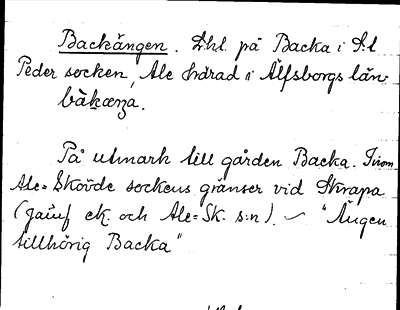 Backängen. Lhl. på Backa i S:t
Peder socken, Ale härad i Älfsborgs län.
bàkæŋa.
På utmark till gården Backa. Inom
Ale-Skövde sockens gränser vid Skrapa
(jämf ek. och Ale-Sk. s:n). – "Ängen
tillhörig Backa"